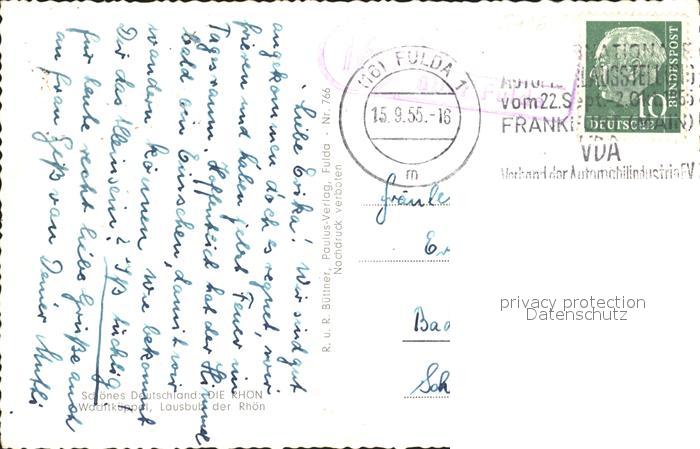 Liebe Erika! Wir sind gut
angekommen doch es regnet, wir
frieren und haben jetzt Feuer im
Tagesraum. Hoffentlich hat der Himmel
bald ein Einsehen, damit wir
wandern können. Wie bekommt
Dir das Kleinsein? Iß tüchtig!
Für heute recht liebe Grüße auch
an Frau Geiß von Deiner Mutti
Schönes Deutschland: DIE RHÖN
Wachtküppel, Lausbub der Rhön
R. u. R. Büttner, Paulus-Verlag, Fulda · Nr. 766
Nachdruck verboten
(16) FULDA 1
15.9.55.-16
m
vom 22. Sept.-2.
FRANKF (MAIN)
VDA
Verband der Automobilindustrie EV
10
DEUTSCHE
BUNDESPOST
Fräule
Er
Bad
Sch
privacy protection
Datenschutz